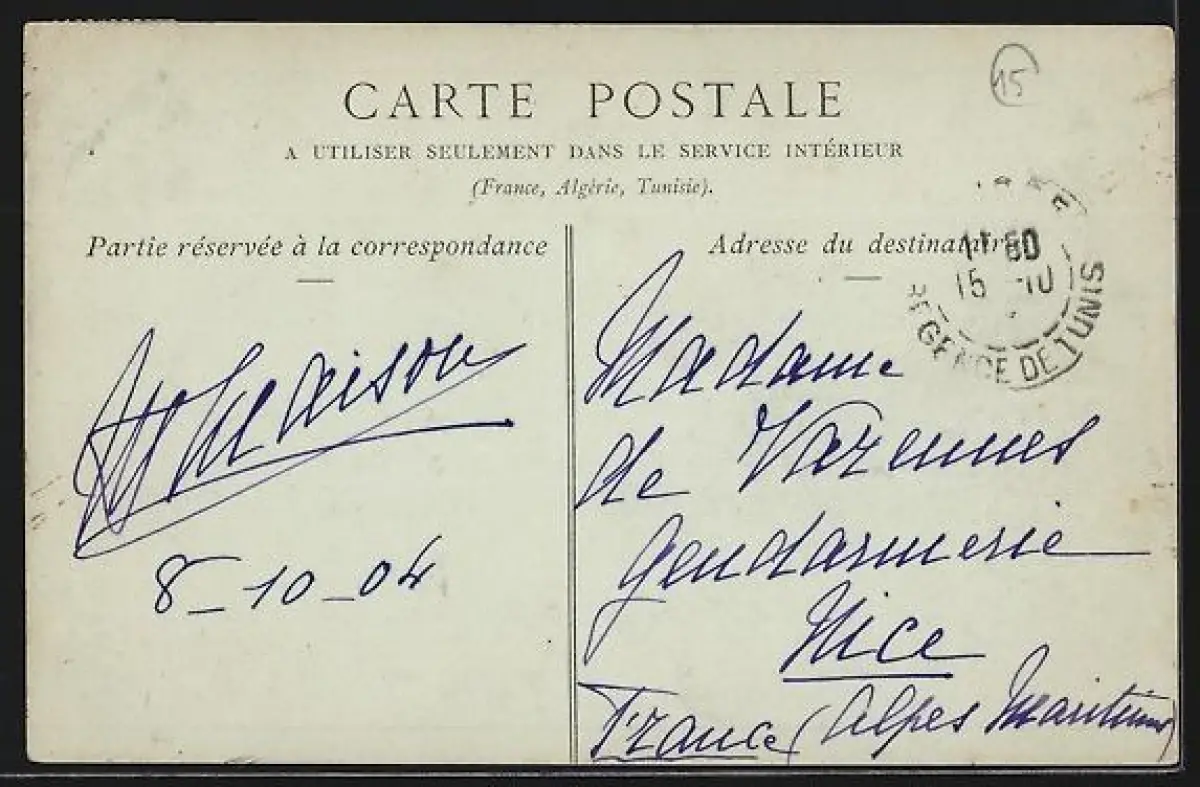 CARTE POSTALE
15
A UTILISER SEULEMENT DANS LE SERVICE INTÉRIEUR
(France, Algérie, Tunisie).
Partie réservée à la correspondance
8-10-04
Adresse du destinataire
15 -10
REGENCE DE TUNIS
Madame
de Varennes
Gendarmerie
Nice
France (Alpes Maritimes)